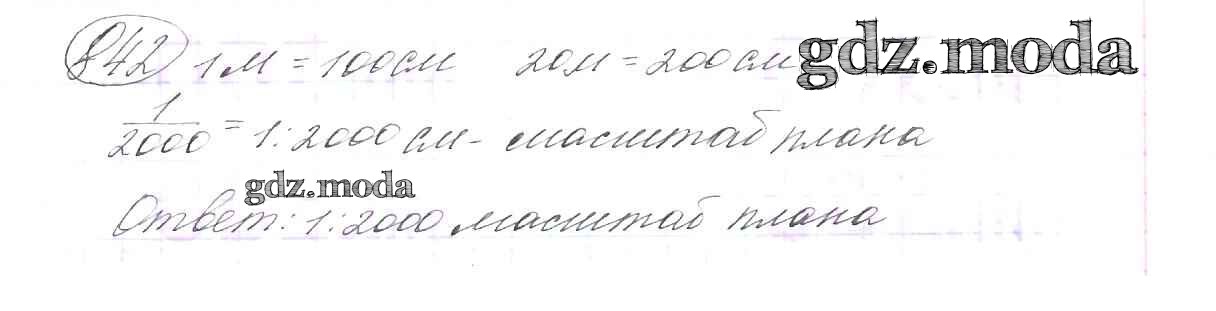 842 1 м = 100 см 20 м = 200 см gdz.moda
1/2000 = 1:2000 см - масштаб плана
gdz.moda
Ответ: 1:2000 масштаб плана